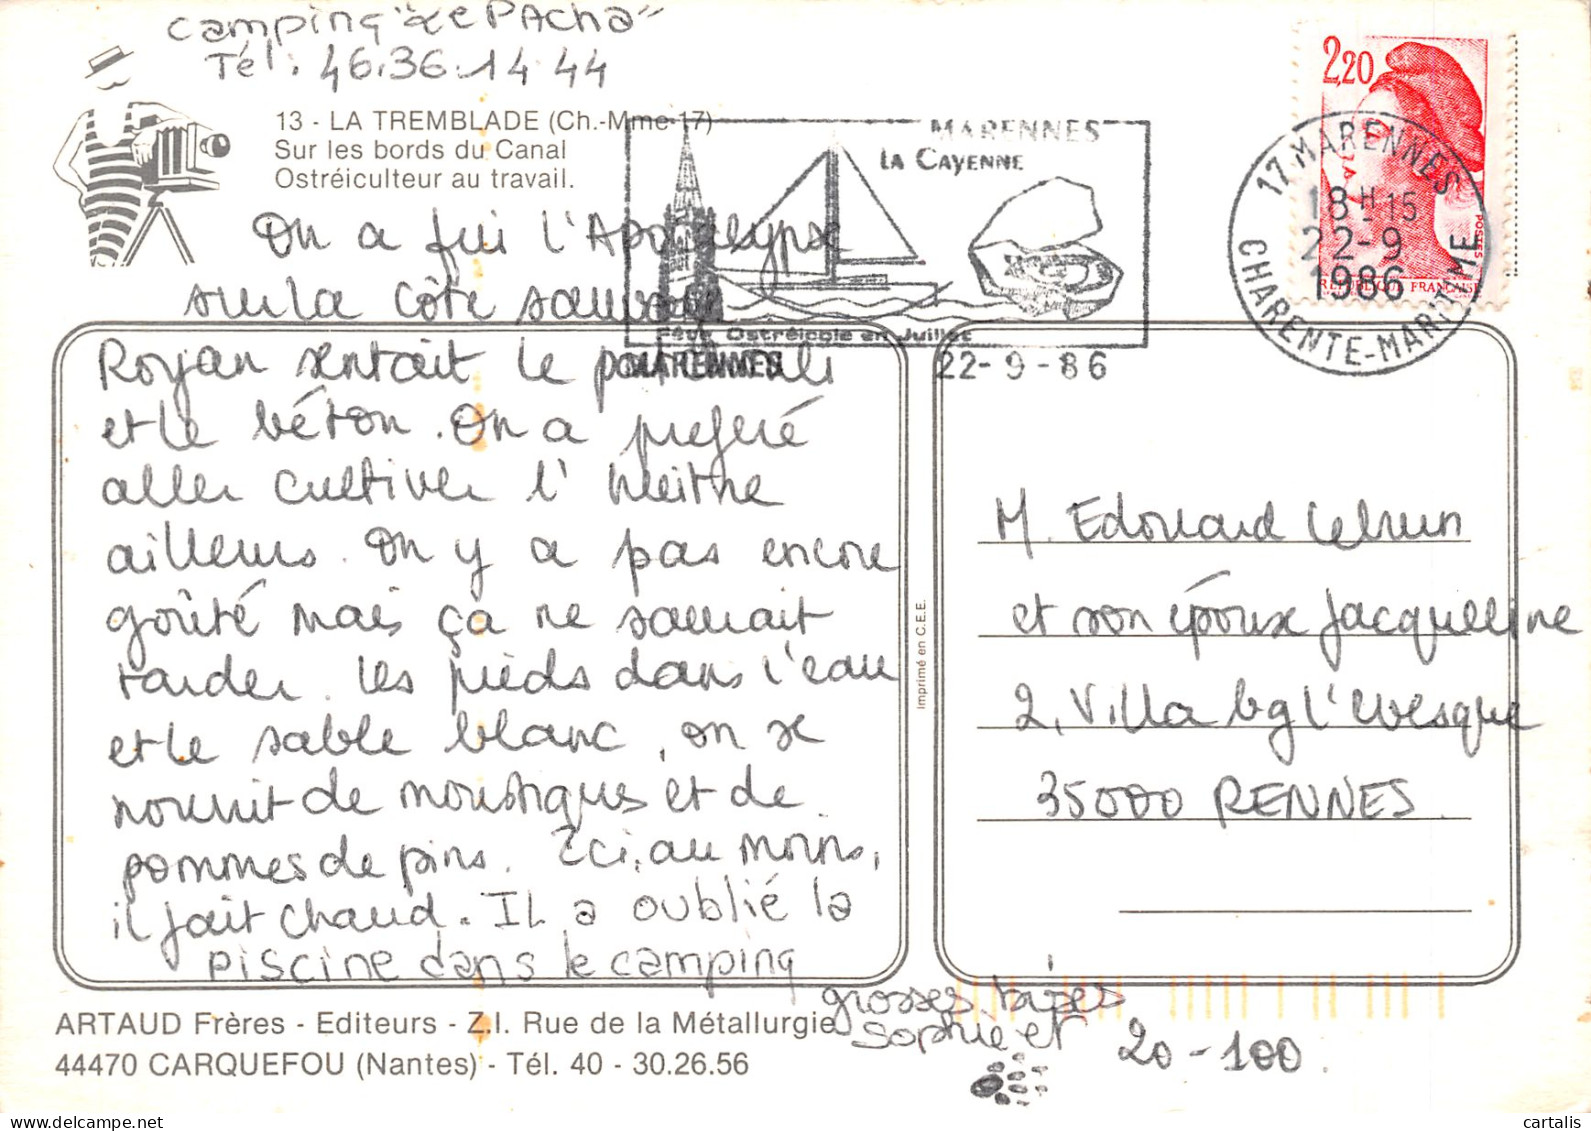 Camping "Le PAcha"
Tél. 46.36.14 44
13 - LA TREMBLADE (Ch.-Mme-17)
Sur les bords du Canal
Ostréiculteur au travail.
MARENNES
LA CAYENNE
Fête Ostréicole en Juillet
MARENNES
22-9-86
2,20
POSTES
REPUBLIQUE FRANÇAISE
17 MARENNES
18H15
22-9
1986
CHARENTE-MARITIME
On a fui l'Apocalypse
sur la côte sauvage
Royan sentait le
et le béton. On a preferé
aller cultiver l'huitre
ailleurs. On y a pas encore
goûté mais ça ne saurait
tarder. Les pieds dans l'eau
et le sable blanc, on se
nourrit de moustiques et de
pommes de pins. Ici, au moins,
il fait chaud. IL a oublié la
piscine dans le camping
grosses bises
Sophie et
20-100.
Imprimé en C.E.E.
M. Edouard Lebrun
et son époux Jacquelline
2, Villa bg l'evesque
35000 RENNES
ARTAUD Frères - Editeurs - Z.I. Rue de la Métallurgie
44470 CARQUEFOU (Nantes) - Tél. 40 - 30.26.56
cartalis